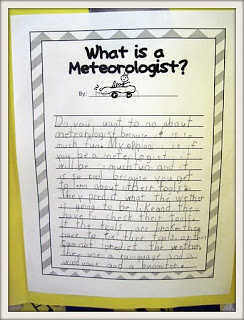 What is a
Meteorologist?
By:
Do you want to no about
meteorologist because it is so
much fun. My opinion is if
you be a meterologist it
will be so much fun and it
is so cool because you get
to lern about their tools.
They predict what the wether
is going to be like and they
have to check their tools
if the tools are broke they
have to fix their tools or they
can not predict the wether,
they use a and a
windvane and a